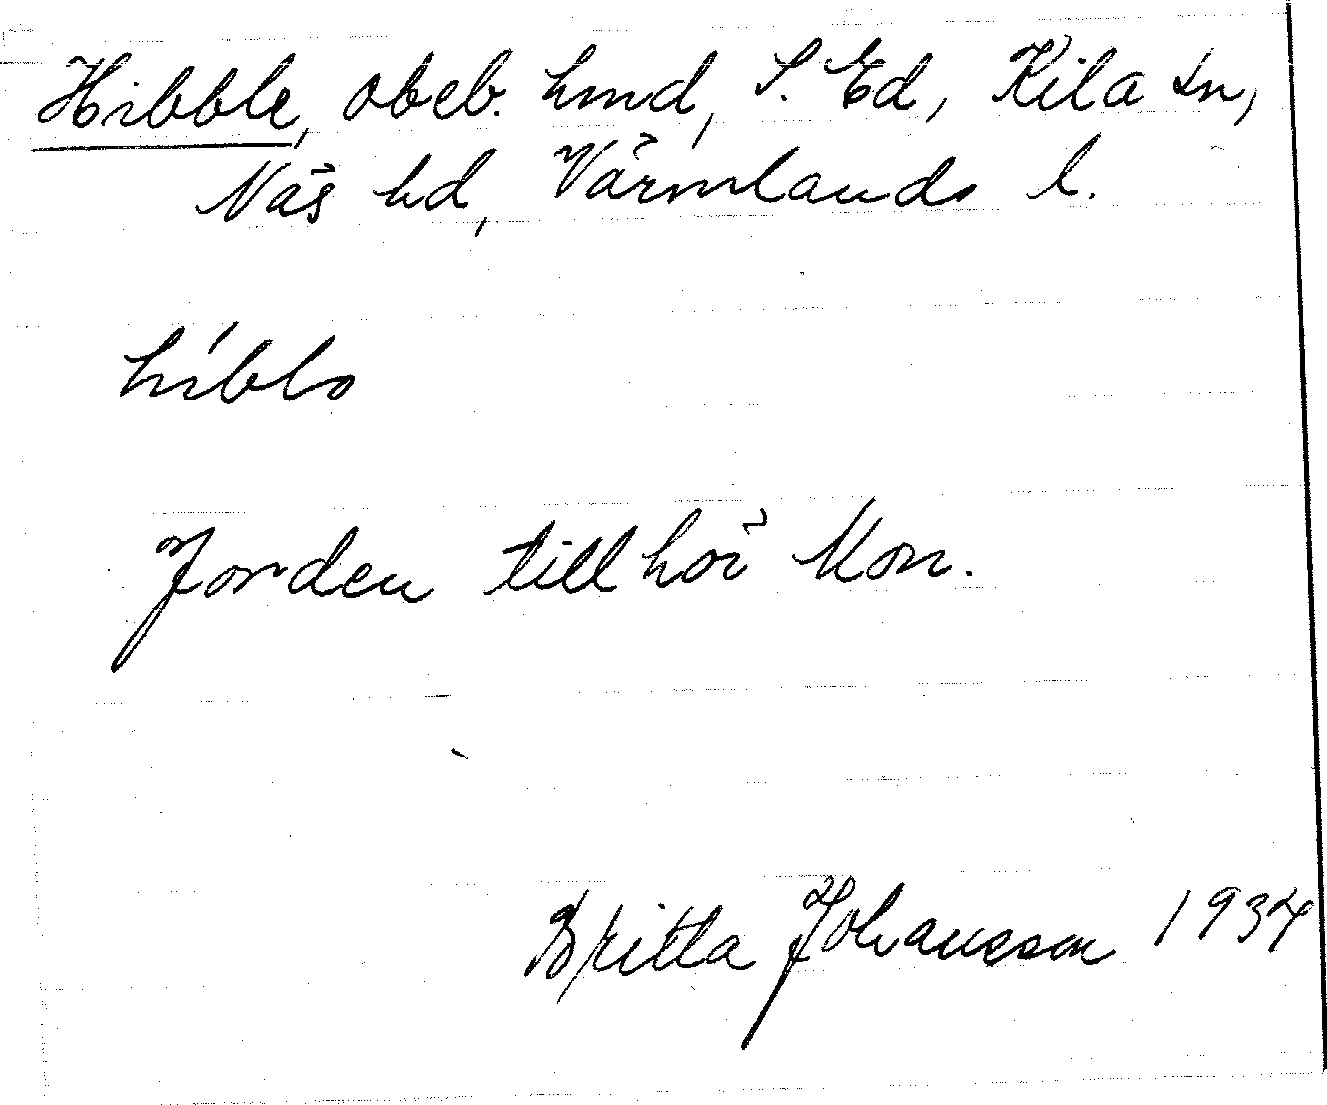 Hibble, obeb. hmd, S. Ed, Kila sn,
Näs hd, Värmlands l.
hìbblo
Jorden tillhör Mon.
Britta Johansson 1934